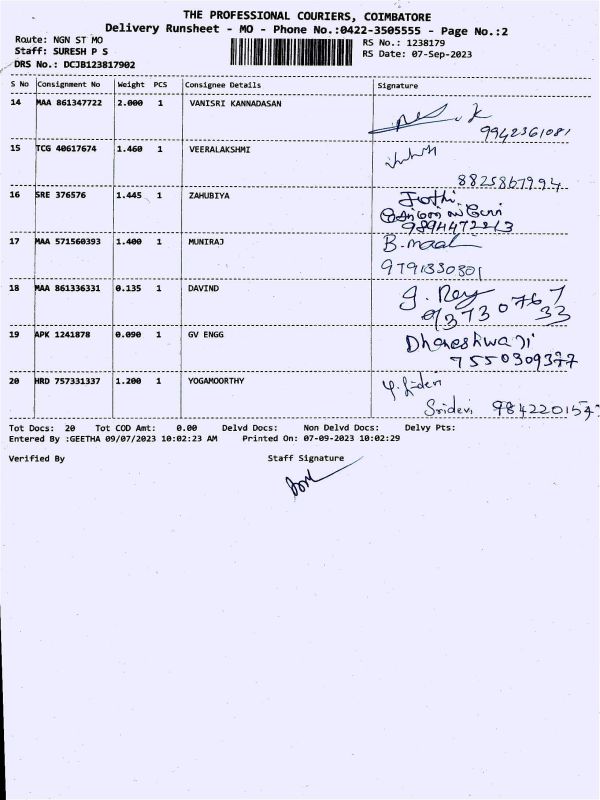 THE PROFESSIONAL COURIERS, COIMBATORE
Delivery Runsheet - MO - Phone No.:0422-3505555 - Page No.:2
Route: NGN ST MO
RS No.: 1238179
Staff: SURESH P S
RS Date: 07-Sep-2023
DRS No.: DCJB123817902
S No Consignment No Weight PCS Consignee Details Signature
14 MAA 861347722 2.000 1 VANISRI KANNADASAN
9942361081
15 TCG 40617674 1.460 1 VEERALAKSHMI
8825867994
16 SRE 376576 1.445 1 ZAHUBIYA Jothi
9894472213
17 MAA 571560393 1.400 1 MUNIRAJ B.
9791330301
18 MAA 861336331 0.135 1 DAVIND
9373 0767
33
19 APK 1241878 0.090 1 GV ENGG Dhaneshwari
7550309377
20 HRD 757331337 1.200 1 YOGAMOORTHY
Sridevi 984220154
Tot Docs: 20 Tot COD Amt: 0.00 Delvd Docs: Non Delvd Docs: Delvy Pts:
Entered By :GEETHA 09/07/2023 10:02:23 AM Printed On: 07-09-2023 10:02:29
Verified By Staff Signature